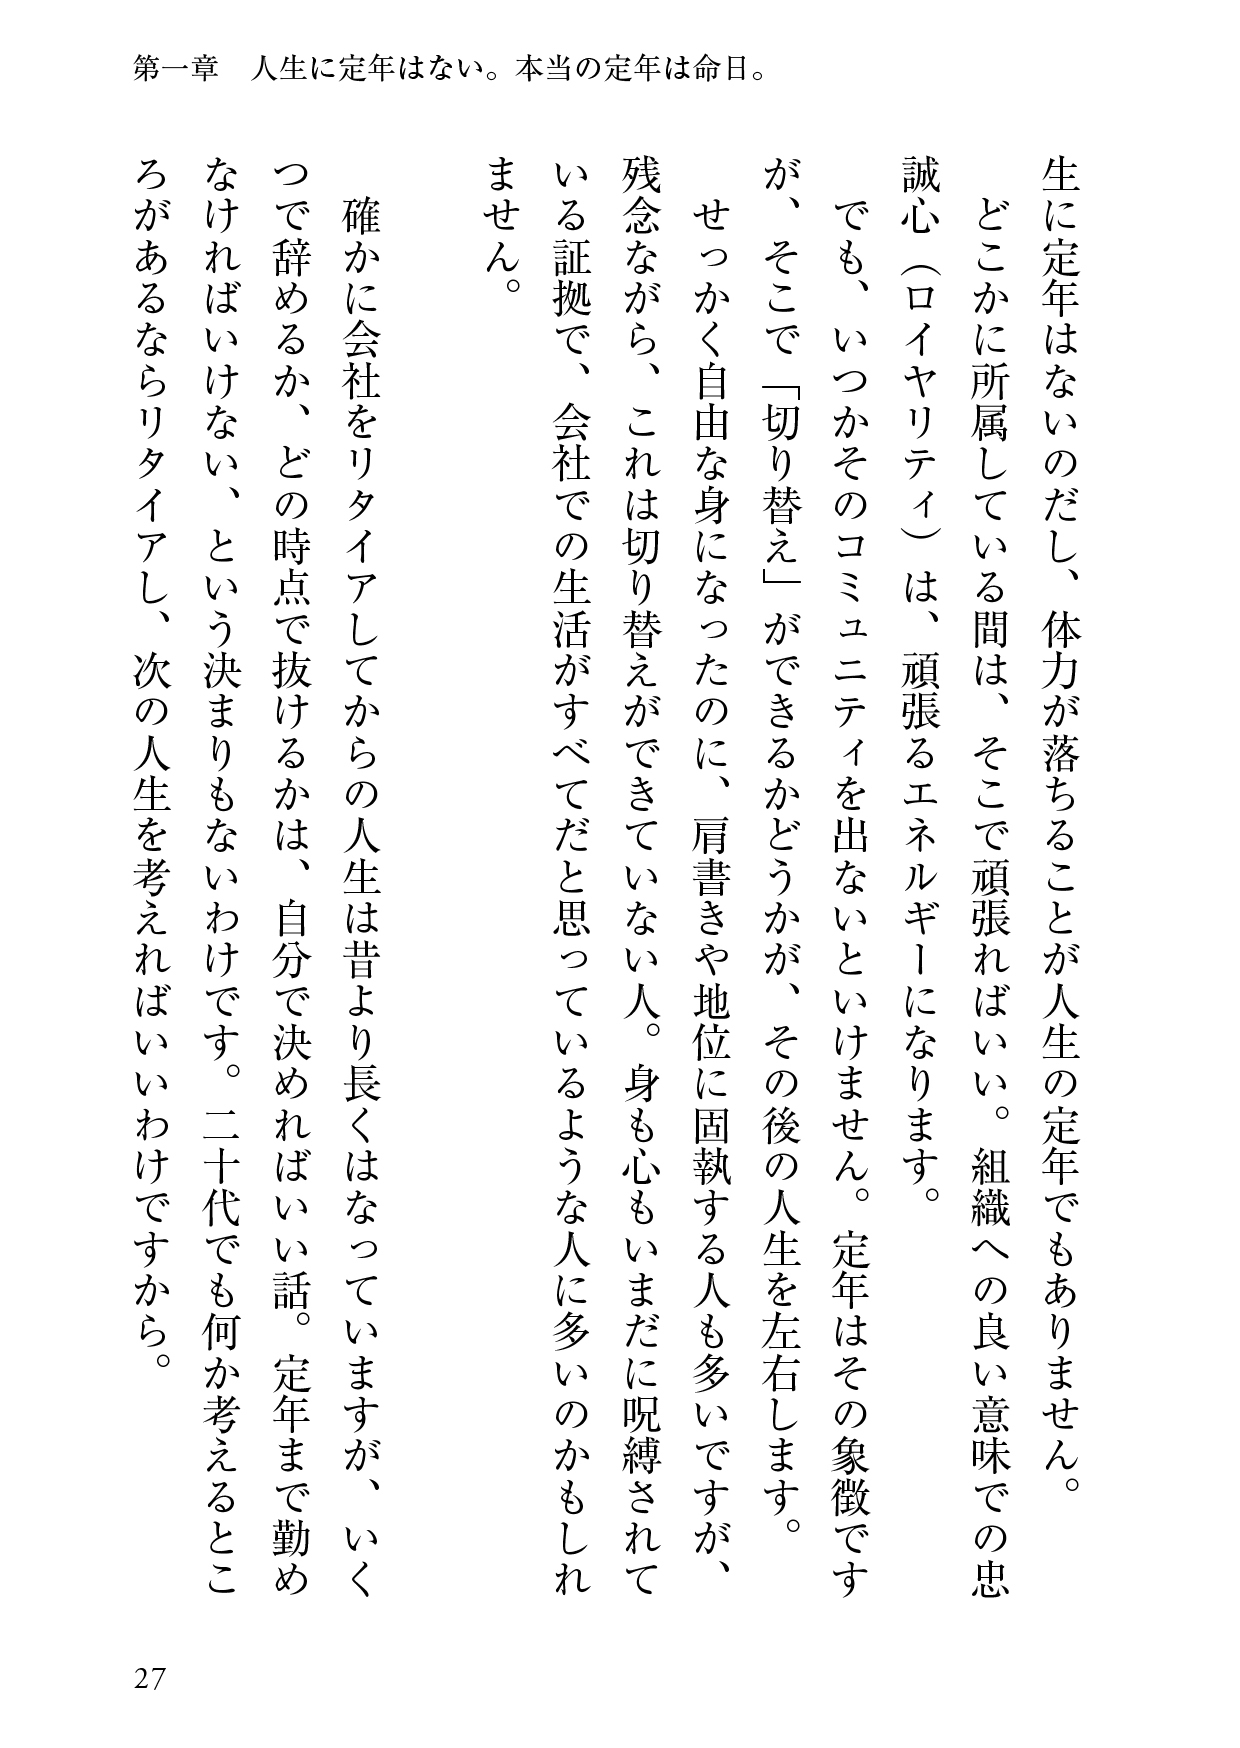 第一章　人生に定年はない。本当の定年は命日。
生に定年はないのだし、体力が落ちることが人生の定年でもありません。
　どこかに所属している間は、そこで頑張ればいい。組織への良い意味での忠
誠心（ロイヤリティ）は、頑張るエネルギーになります。
　でも、いつかそのコミュニティを出ないといけません。定年はその象徴です
が、そこで「切り替え」ができるかどうかが、その後の人生を左右します。
　せっかく自由な身になったのに、肩書きや地位に固執する人も多いですが、
残念ながら、これは切り替えができていない人。身も心もいまだに呪縛されて
いる証拠で、会社での生活がすべてだと思っているような人に多いのかもしれ
ません。
　確かに会社をリタイアしてからの人生は昔より長くはなっていますが、いく
つで辞めるか、どの時点で抜けるかは、自分で決めればいい話。定年まで勤め
なければいけない、という決まりもないわけです。二十代でも何か考えるとこ
ろがあるならリタイアし、次の人生を考えればいいわけですから。
27